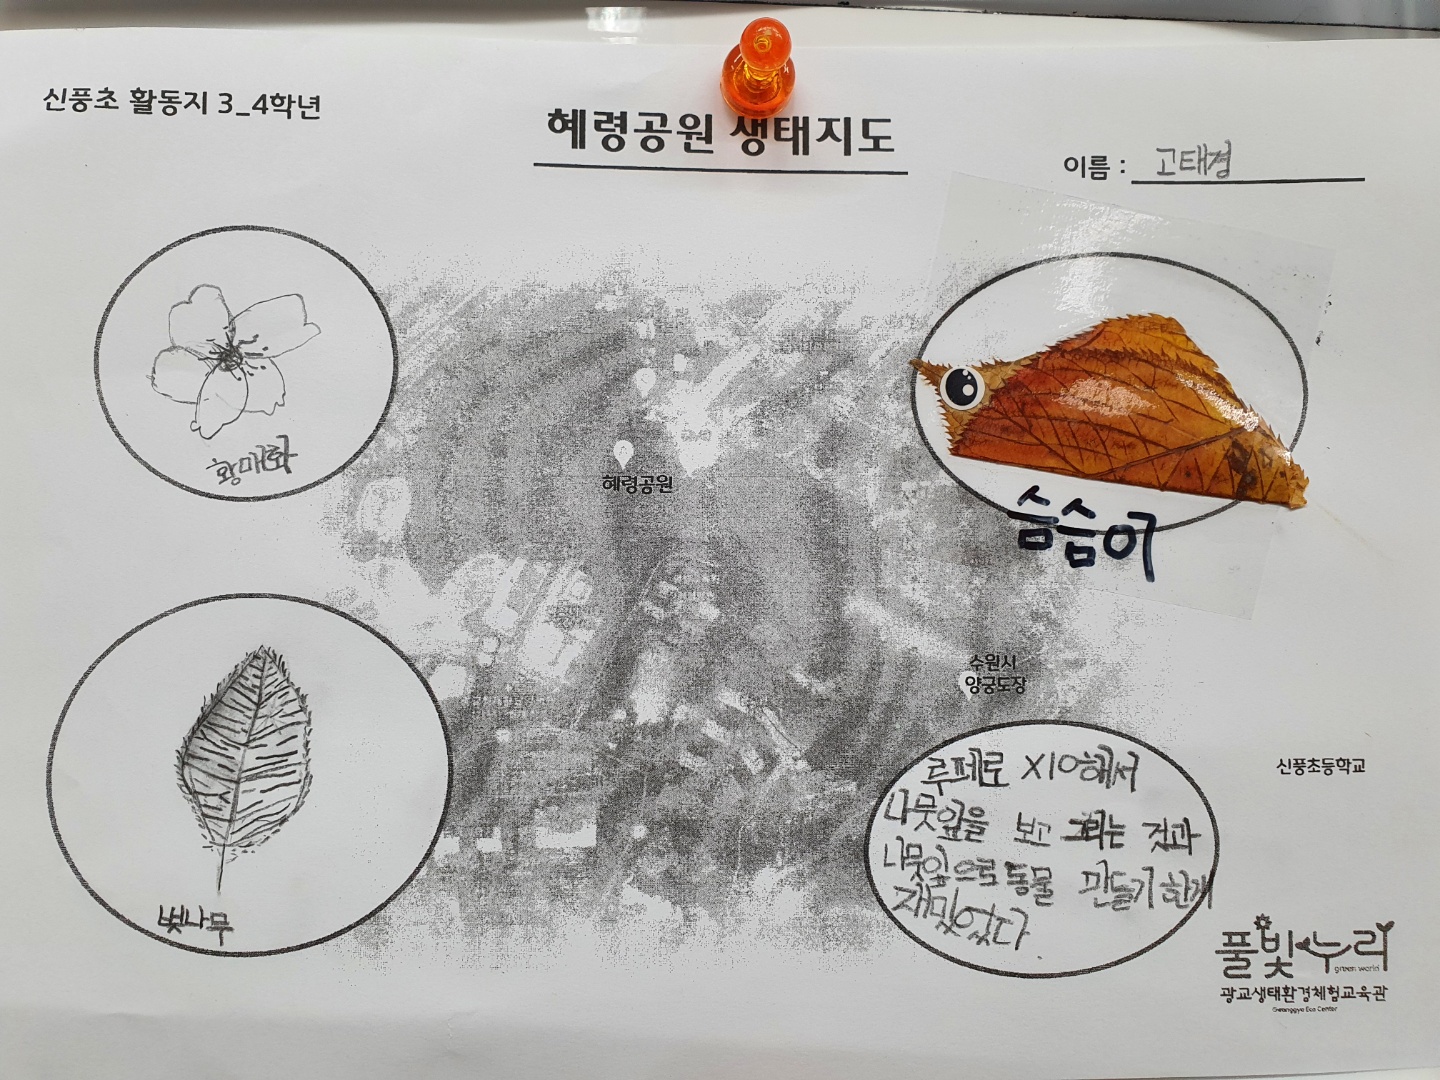 신풍초 활동지 3_4학년
혜령공원 생태지도
이름 : 고태경
황매화
혜령공원
슴슴어
수원시
양궁도장
벚나무
루페로 X10해서
나뭇잎을 보고 그리는 것과
나뭇잎으로 동물 만들기 한게
재밌었다
신풍초등학교
풀빛누리
green world
광교생태환경체험교육관
Gwanggyo Eco Center